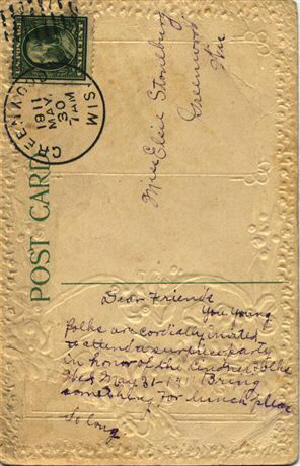 GREENWOOD
1911
MAY
30
7 AM
WIS.
POST CARD
Miss Elsie
Greenwood
Wis
Dear Friends
You Young
folks are cordially invited
to attend a surprise party
in honor of the folks
Wed May 31-1911 Bring
something for lunch please
So long